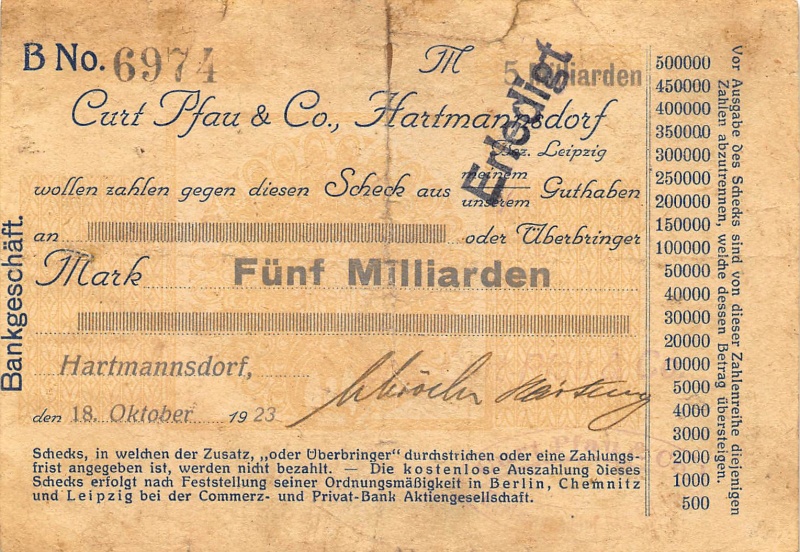 B No. 6974
M 5 Milliarden
Erledigt
Curt Pfau & Co., Hartmannsdorf
Bez. Leipzig
wollen zahlen gegen diesen Scheck aus meinem Guthaben
unserem
an oder Überbringer
Mark Fünf Milliarden
Hartmannsdorf,
den 18. Oktober 1923
Hartung
Schecks, in welchen der Zusatz, „oder Überbringer" durchstrichen oder eine Zahlungs-
frist angegeben ist, werden nicht bezahlt. — Die kostenlose Auszahlung dieses
Schecks erfolgt nach Feststellung seiner Ordnungsmäßigkeit in Berlin, Chemnitz
und Leipzig bei der Commerz- und Privat-Bank Aktiengesellschaft.
Bankgeschäft.
500000
450000
400000
350000
300000
250000
200000
150000
100000
50000
40000
30000
20000
10000
5000
4000
3000
2000
1000
500
Vor Ausgabe des Schecks sind von dieser Zahlenreihe diejenigen
Zahlen abzutrennen, welche dessen Betrag übersteigen.